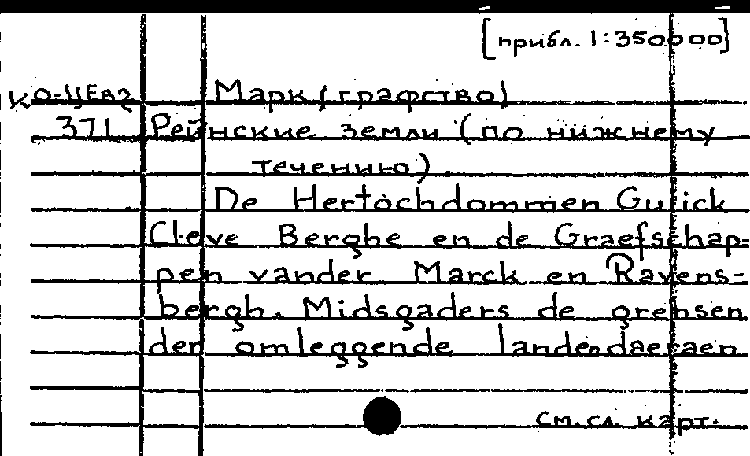 [прибл. 1:350000]
Марк (графство)
371 Рейнские земли (по нижнему
течению).
De Hertochdommen Gulick
Cleve Berghe en de Graefschap-
pen vander Marck en Ravens-
bergh. Midsgaders de grensen
der omleggende
см. сл. карт.